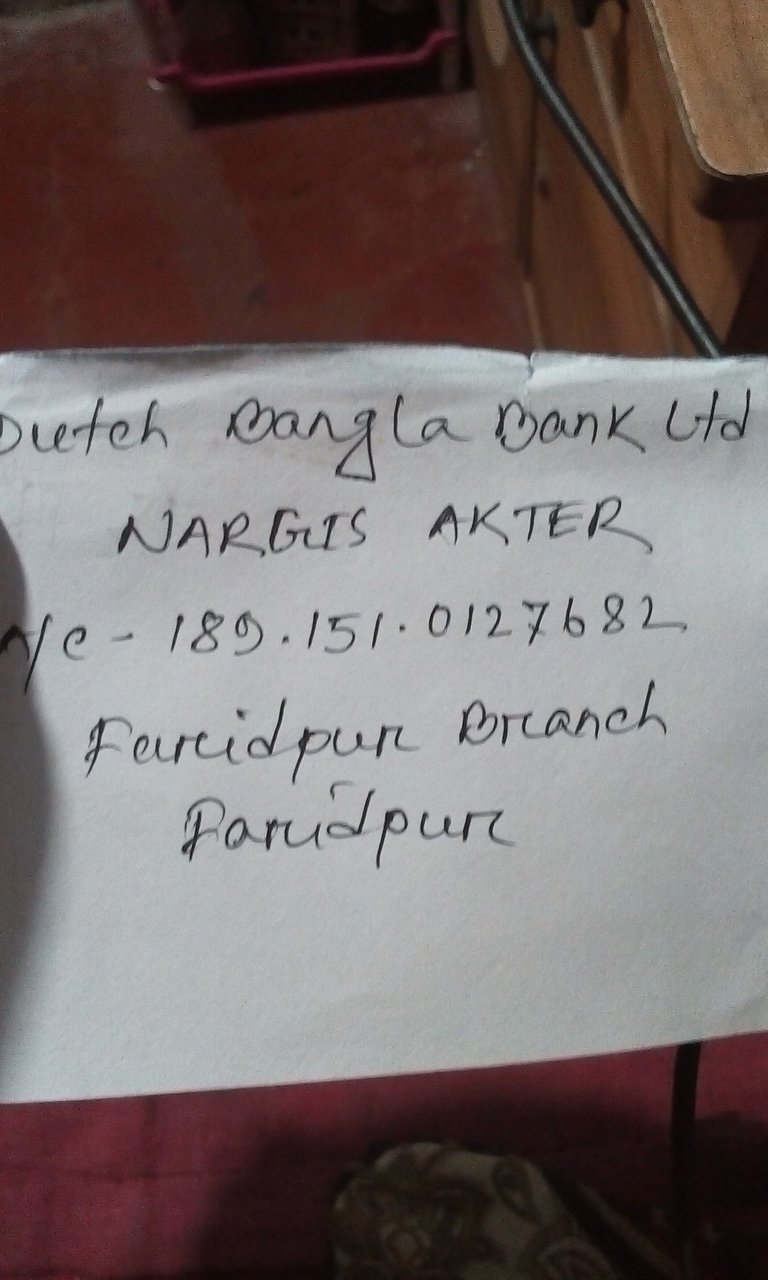 Dutch Bangla Bank Ltd
NARGIS AKTER
A/c - 189.151.0127682
Faridpur Branch
Faridpur